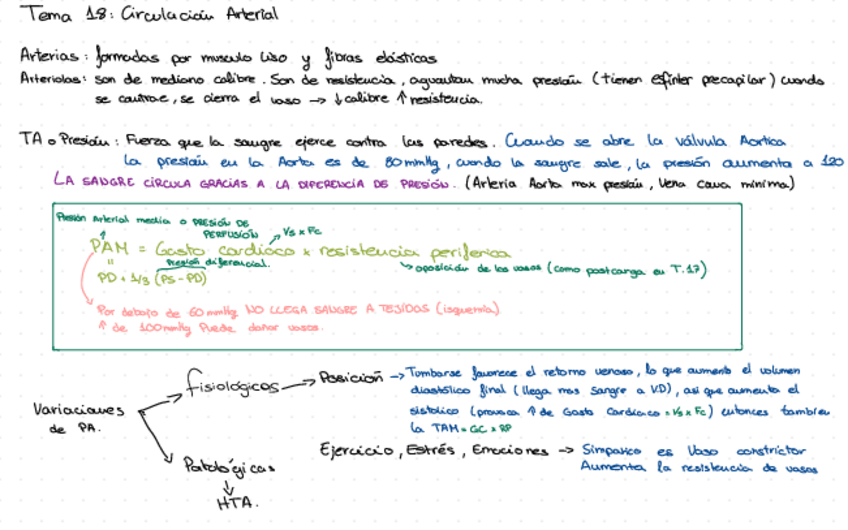 Tema 18: Circulación Arterial
Arterias: formadas por musculo liso y fibras elásticas
Arteriolas: son de mediano calibre. Son de resistencia, aguantan mucha presión (tienen esfinter precapilar) cuando
se contrae, se cierra el vaso → ↓ calibre ↑ resistencia.
TA o Presión: Fuerza que la sangre ejerce contra las paredes. Cuando se abre la válvula Aortica
la presión en la Aorta es de 80 mmHg, cuando la sangre sale, la presión aumenta a 120
LA SANGRE CIRCULA GRACIAS A LA DIFERENCIA DE PRESIÓN. (Arteria Aorta max presión, Vena Cava mínima)
Presión Arterial media o PRESIÓN DE
PERFUSIÓN
Vs x Fc
PAM = Gasto cardiaco x resistencia periferica
"
Presión diferencial.
oposición de los vasos (como postcarga en T.17)
PD + 1/3 (PS - PD)
Por debajo de 60 mmHg NO LLEGA SANGRE A TEJIDOS (isquemia)
↑ de 100mmHg Puede dañar vasos.
Variaciones
de PA.
fisiológicos → Posición → Tumbarse favorece el retorno venoso, lo que aumenta el volumen
diastólico final (llega mas sangre a VD), asi que aumenta el
sistolico (provoca ↑ de Gasto Cardiaco = Vs x Fc) entonces tambien
la TAM = GC x RP
Ejercicio, Estrés, Emociones → Simpatico es Vaso constrictor
Aumenta la resistencia de vasos
Patológicas
↓
HTA.